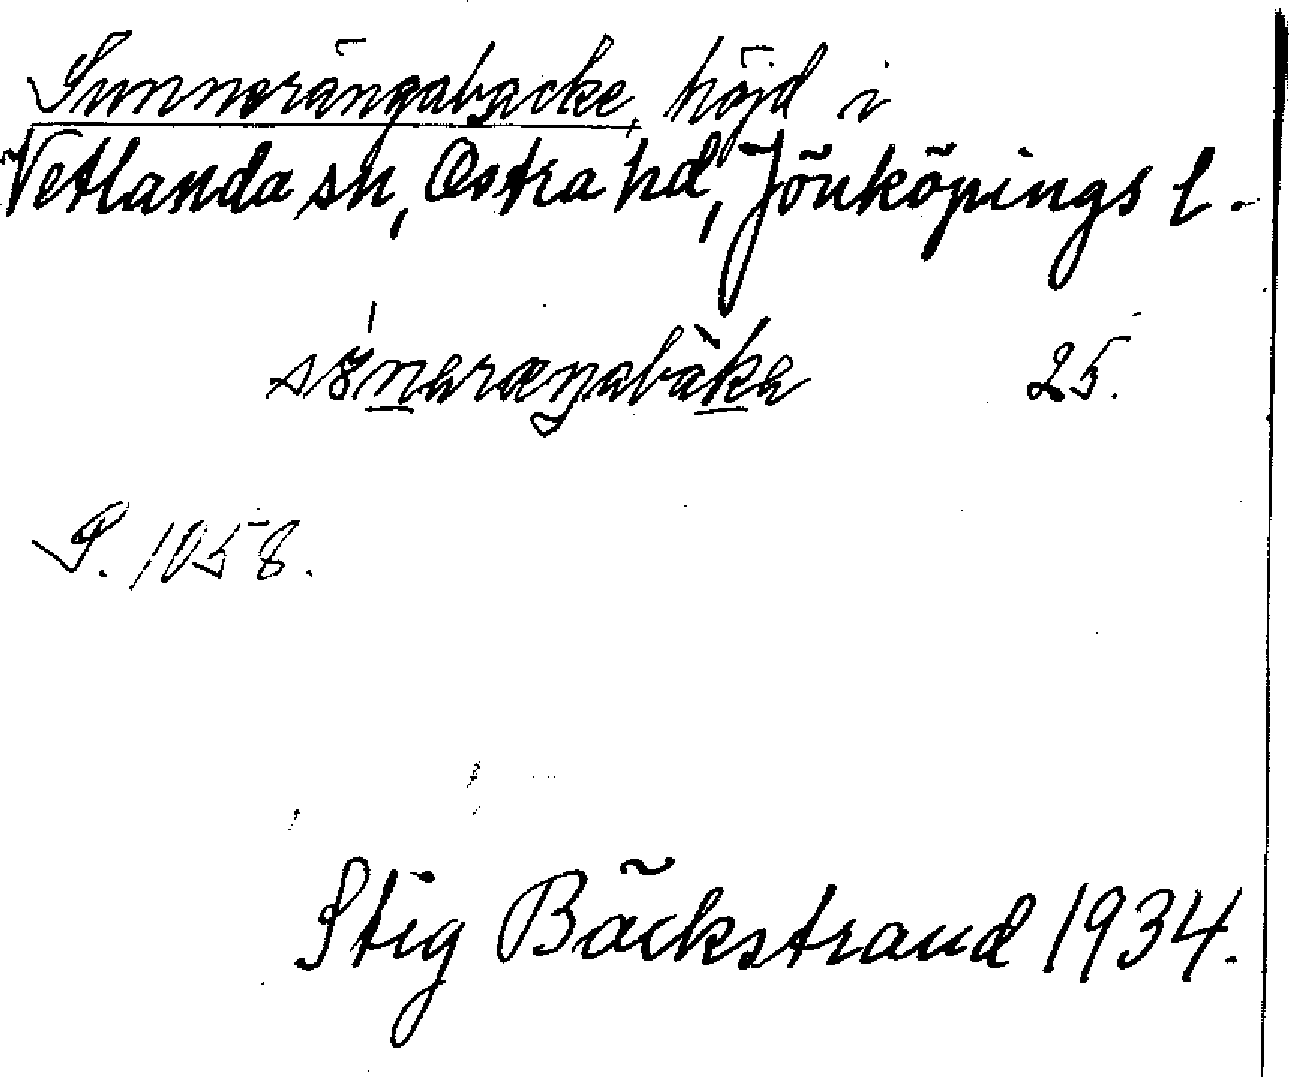 Sunnerängabacke, höjd i
Vetlanda sn, Östra hd, Jönköpings l.
25.
S. 1058.
Stig Bäckstrand 1934.